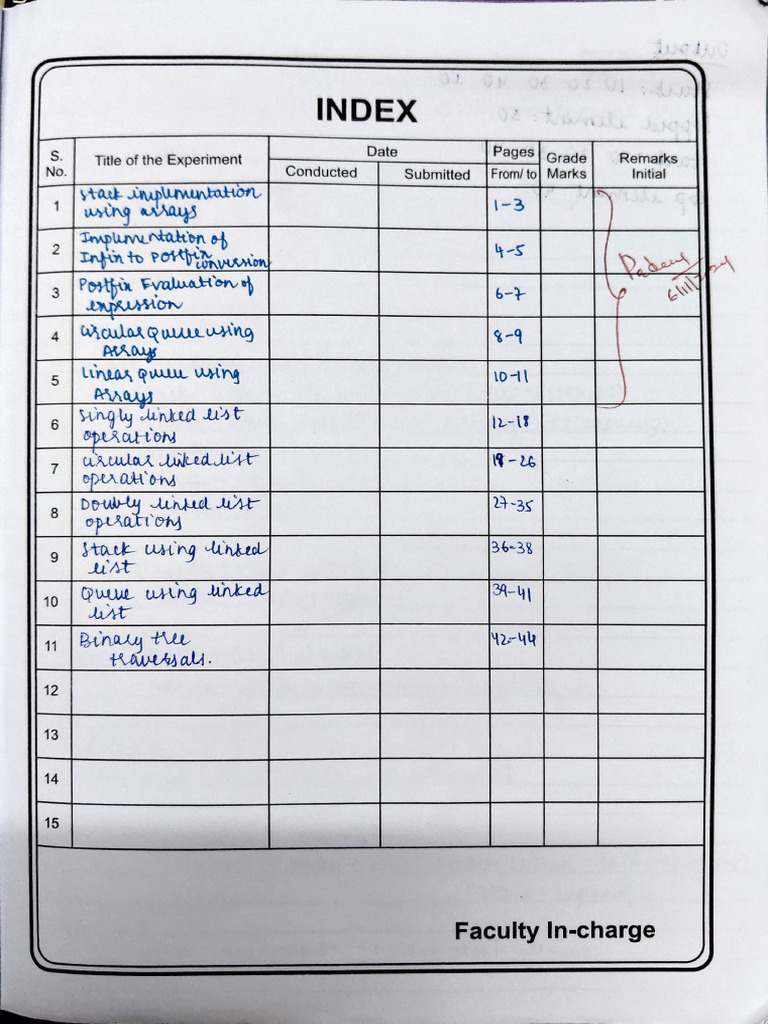 INDEX
S. No. Title of the Experiment Date Pages Grade Marks Remarks Initial
Conducted Submitted From/ to
1 Stack implementation 1-3
using arrays
2 Implementation of 4-5
Infix to Postfix conversion
3 Postfix Evaluation of 6-7
expression
4 circular Queue using 8-9
Arrays
5 Linear Queue using 10-11
Arrays
6 Singly linked list 12-18
operations
7 circular linked list 19-26
operations
8 Doubly linked list 27-35
operations
9 Stack using linked 36-38
list
10 Queue using linked 39-41
list
11 Binary tree 42-44
traversals.
12
13
14
15
Faculty In-charge